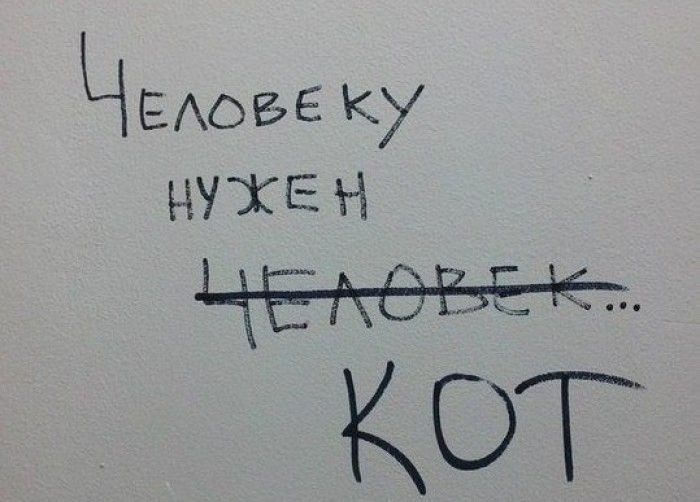 Человеку
нужен
человек...
кот